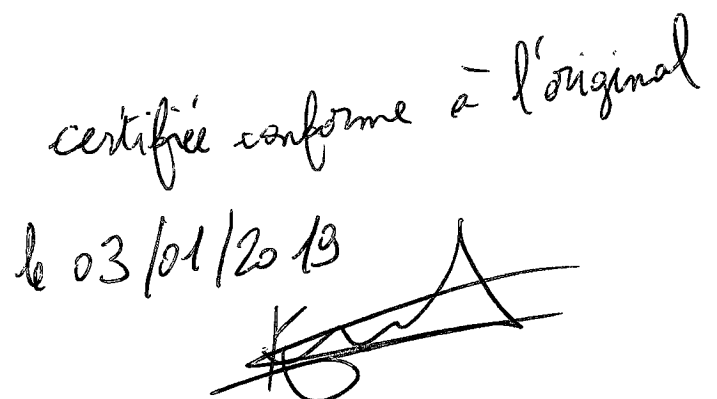 certifiée conforme à l'original
le 03/01/2019